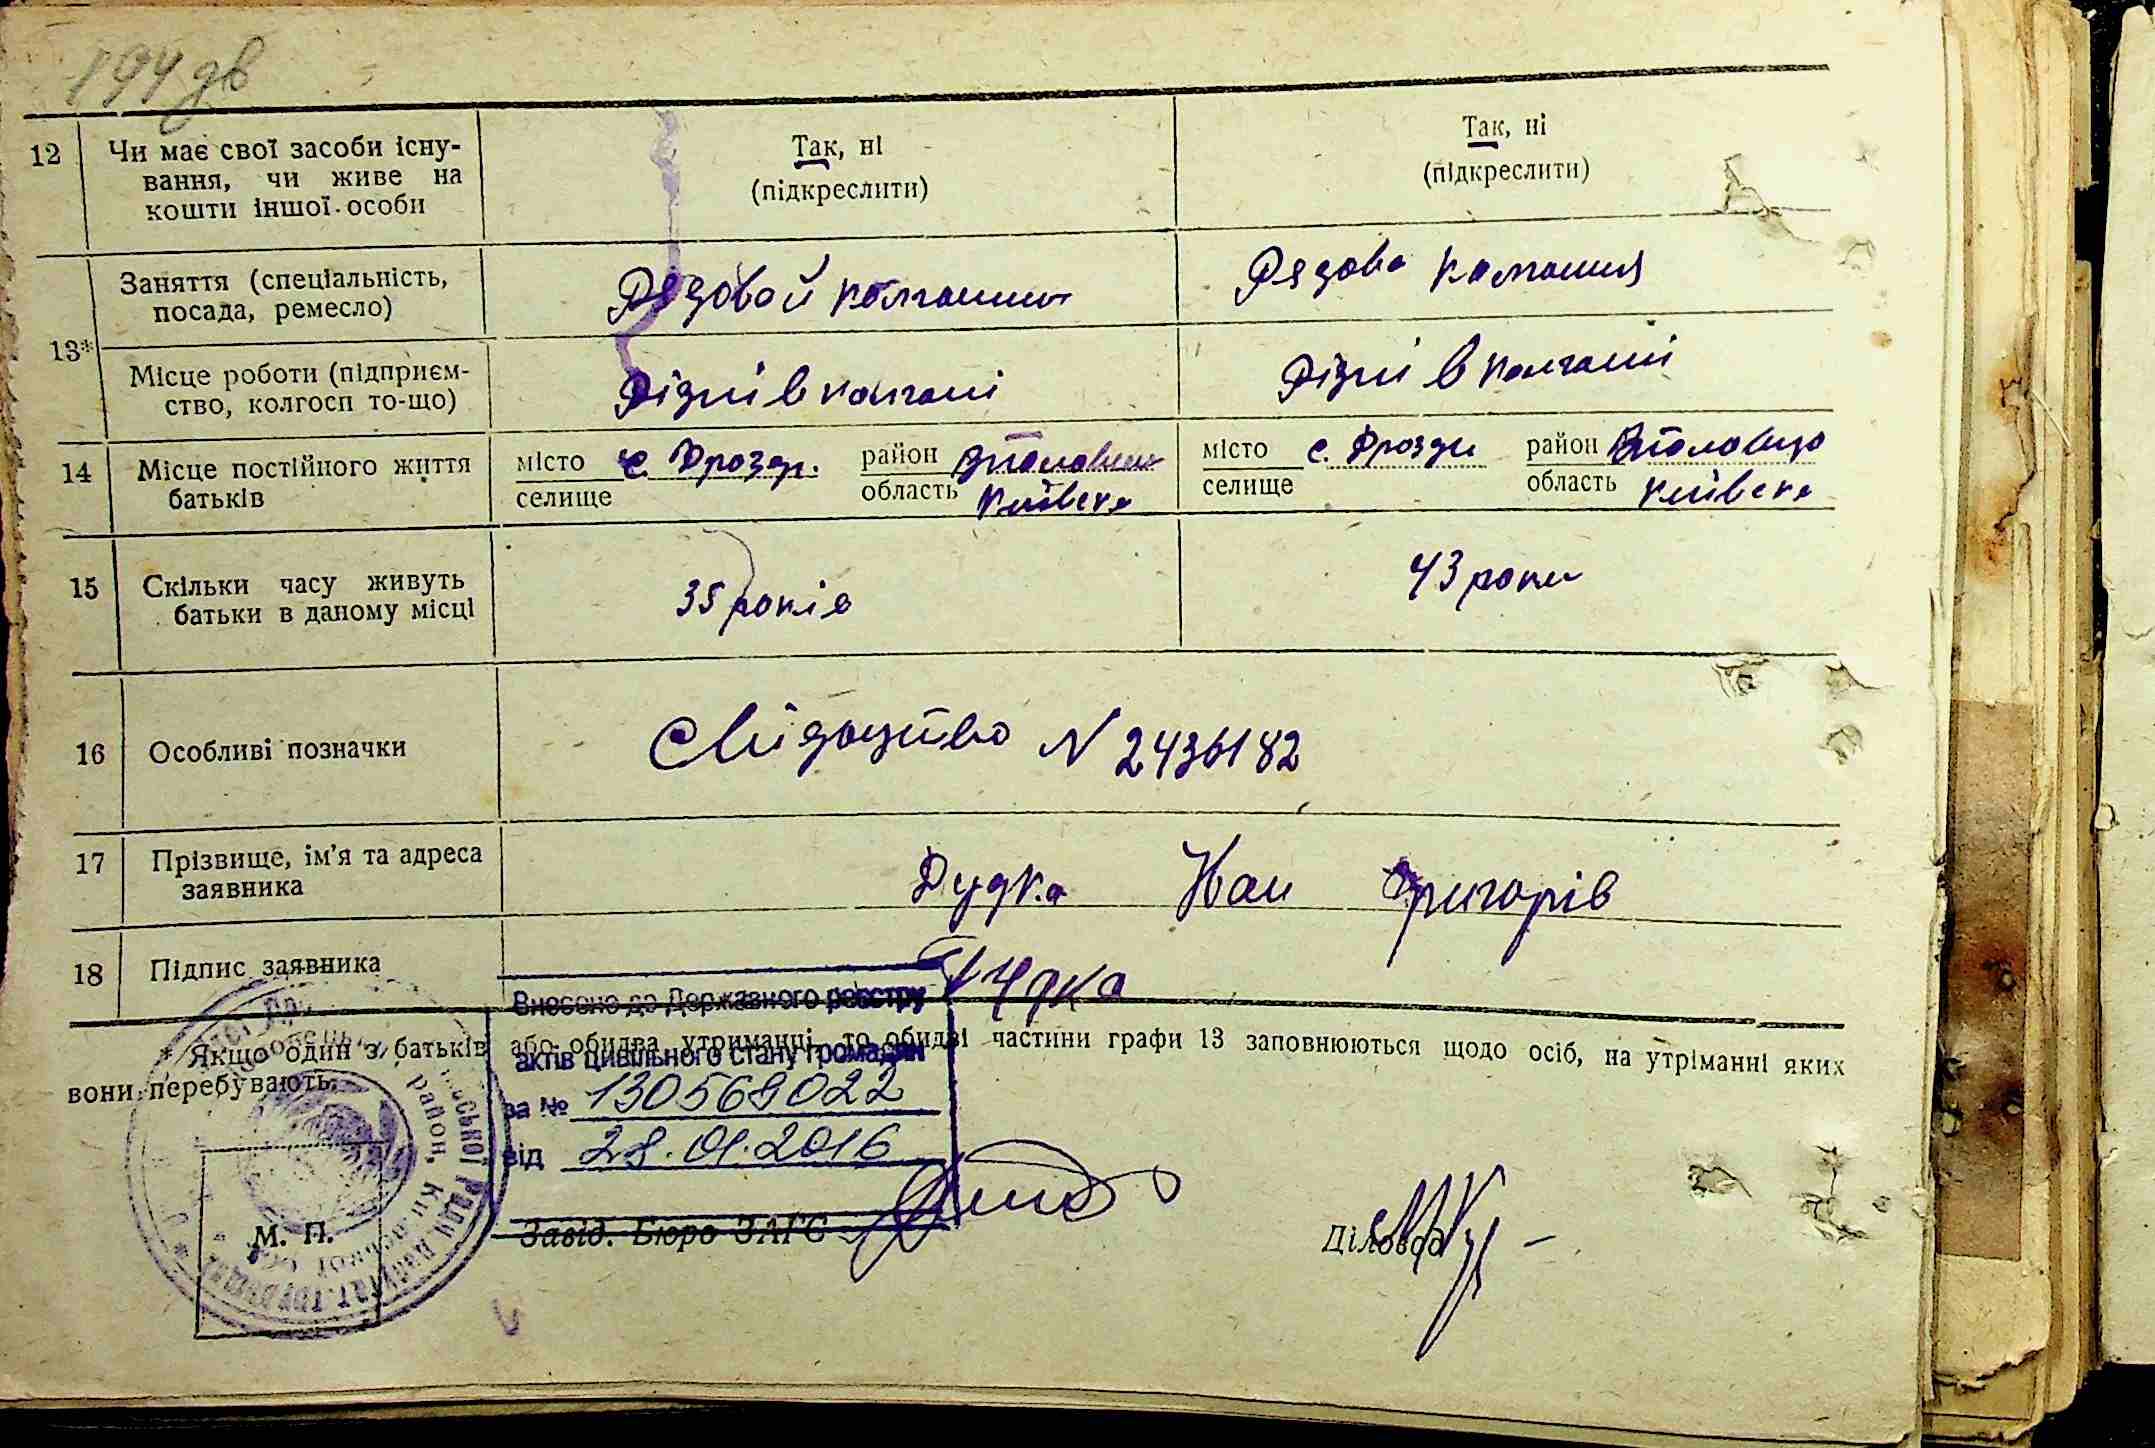 194 зв
12 Чи має свої засоби існу-
вання, чи живе на
кошти іншої особи
Так, ні
(підкреслити)
Так, ні
(підкреслити)
13*
Заняття (спеціальність,
посада, ремесло)
Рядовой
Рядова
Місце роботи (підприєм-
ство, колгосп то-що)
Різні в колгоспі
Різні в колгоспі
14 Місце постійного життя
батьків
місто с. Дрозди район
селище область Київська
місто с. Дрозди район
селище область Київська
15 Скільки часу живуть
батьки в даному місці
35 років
43 роки
16 Особливі позначки
Свідоцтво N 2436182
17 Прізвище, ім'я та адреса
заявника
Дудка Іван Григорів
18 Підпис заявника
Дудка
* Якщо один з батьків або обидва утриманці, то обидві частини графи 13 заповнюються щодо осіб, на утриманні яких
вони перебувають.
Внесено до Державного реєстру
актів цивільного стану громадян
за № 130569022
від 28.01.2016
М. П.
Завід. Бюро ЗАГС
Діловод